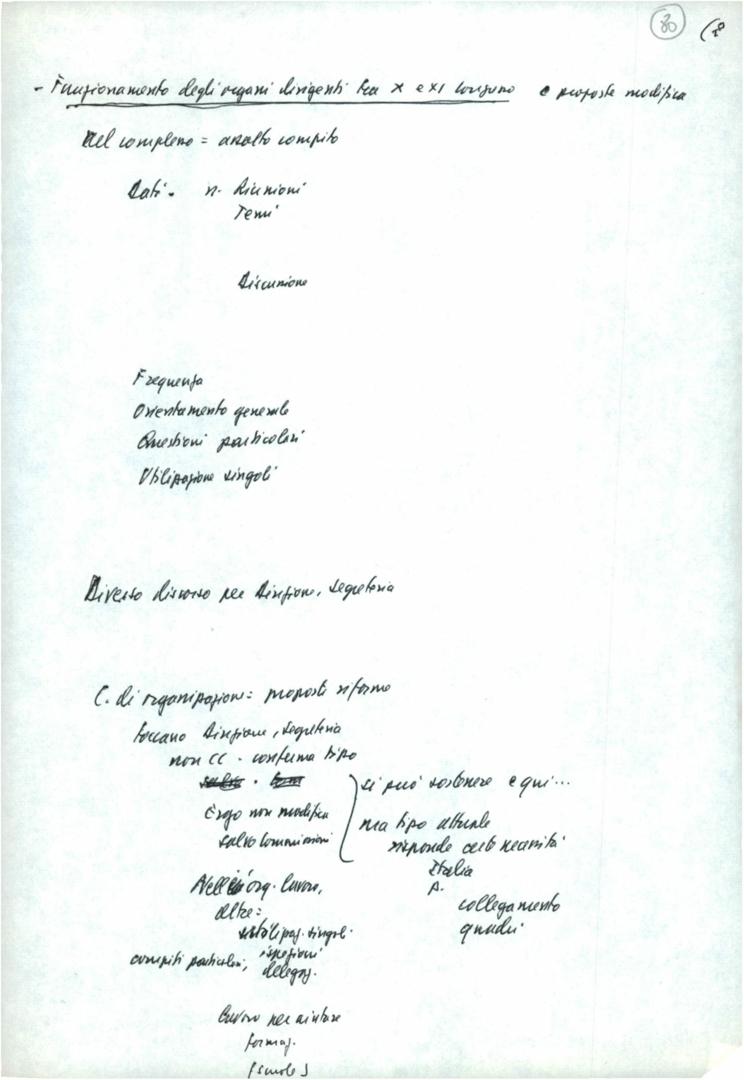 30
- Funzionamento degli organi dirigenti tra X e XI congresso e proposte modifica
Nel complesso = assolto compito
Dati - n. Riunioni
Temi
Discussione
Frequenza
Orientamento generale
Questioni particolari
Utilizzazione singoli
Diverso discorso per Direzione, Segreteria
C. di organizzazione = proposte riforme
toccano Direzione, Segreteria
non CC - conferma tipo
Ergo non modifica
salvo Commissioni
si può sostenere e qui...
ma tipo attuale
risponde certe necessità
Italia
P.
collegamento
quadri
Nell'org. lavoro,
altre:
utilizaz. singoli
compiti particolari, ispezioni
delegaz.
Lavoro per aiutare
formaz.
(scuole)